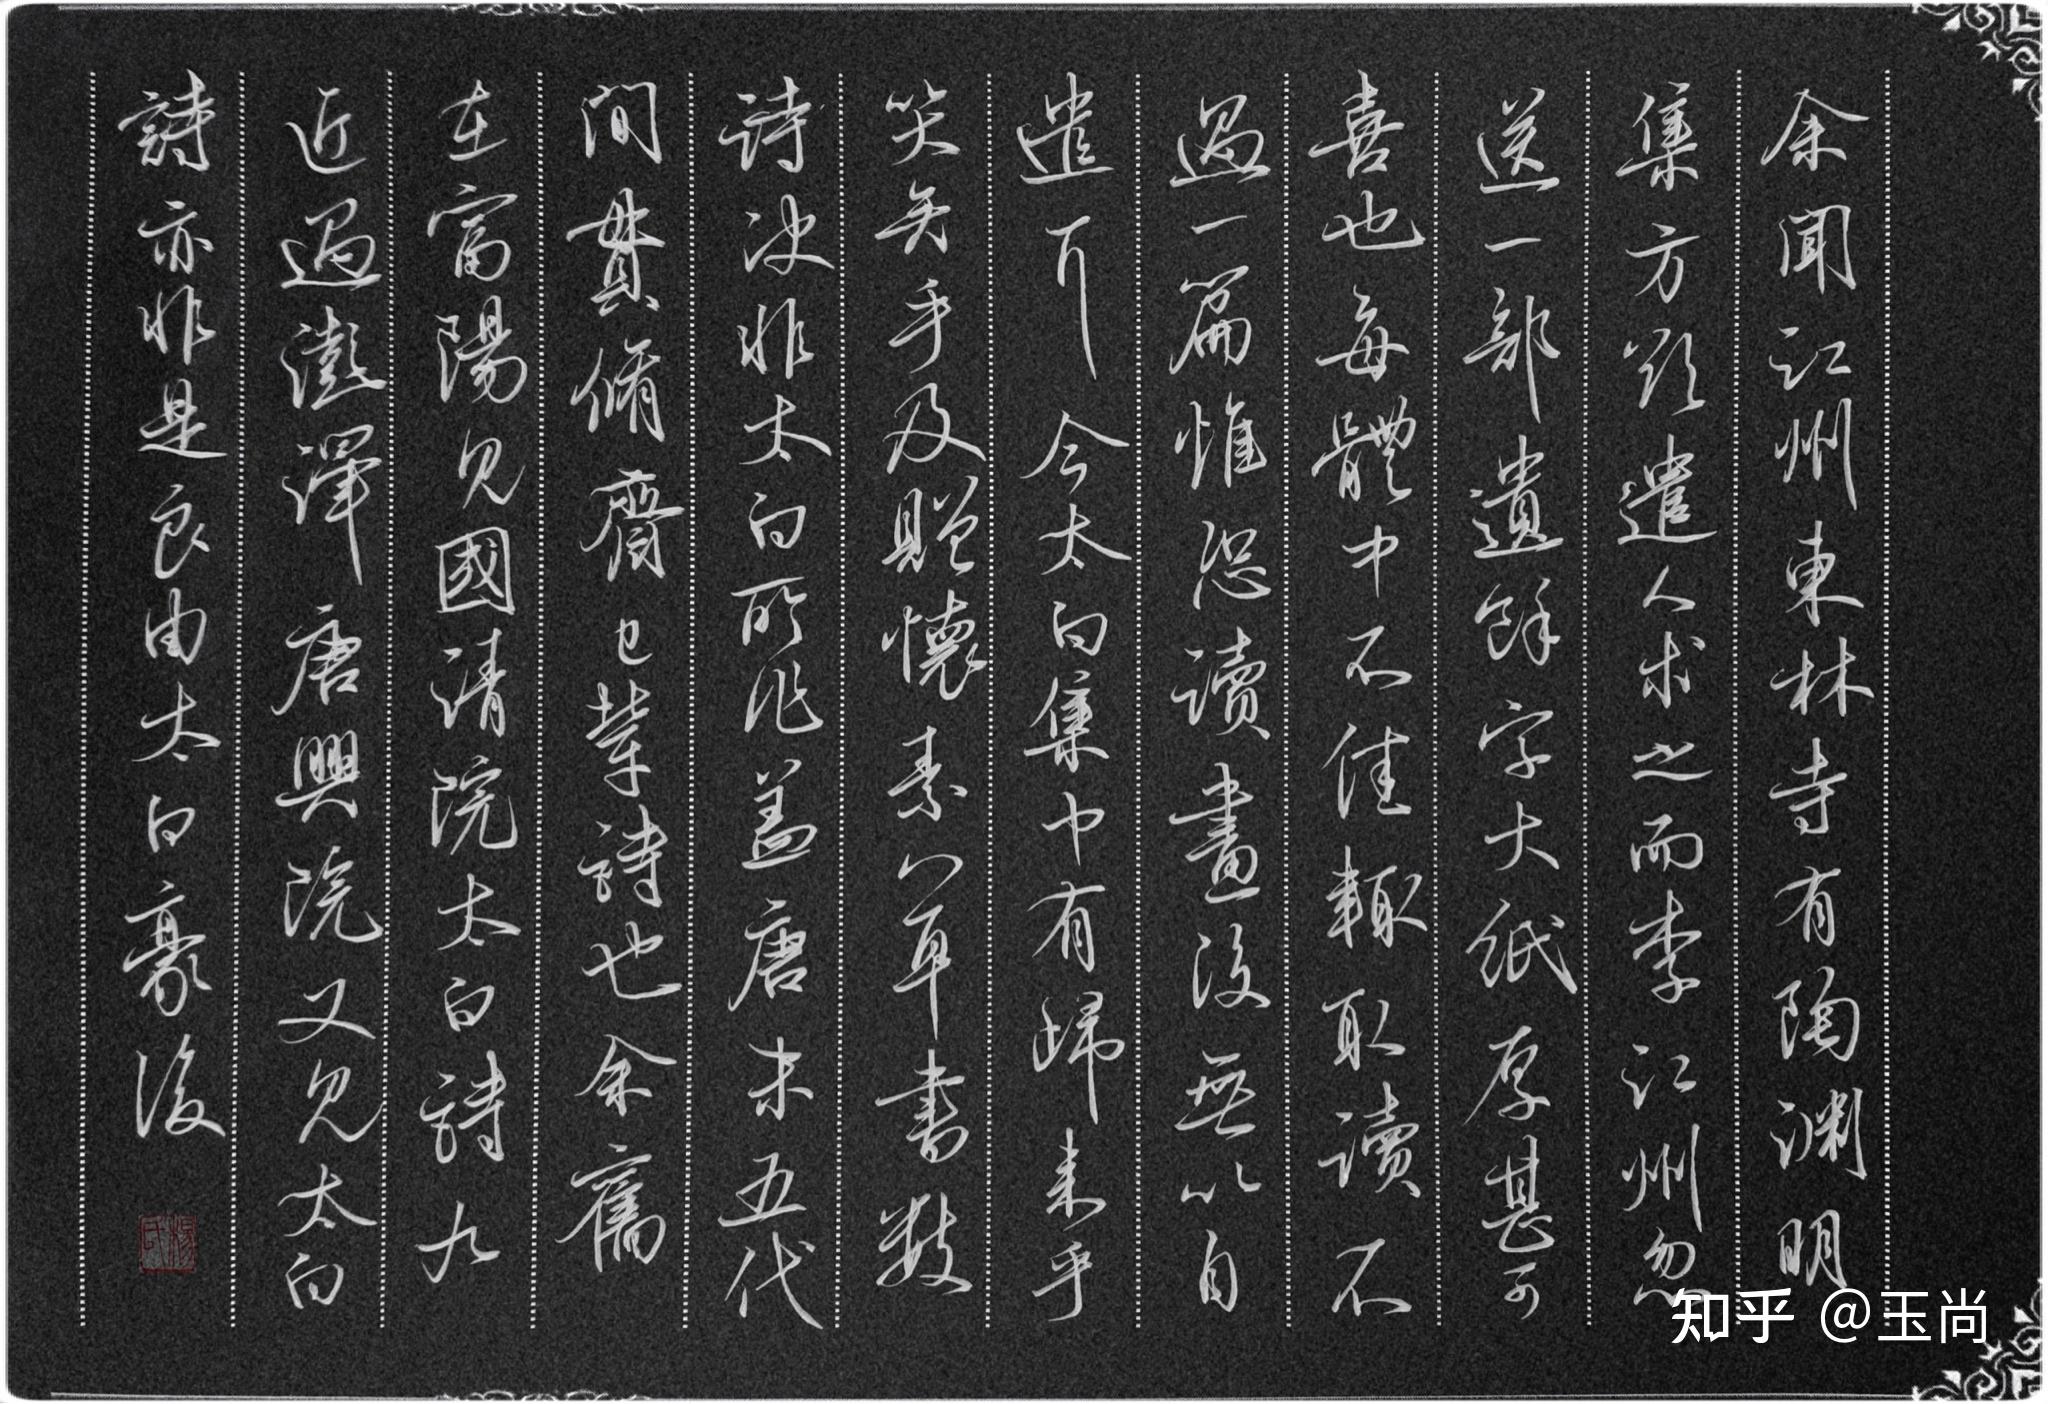 余聞江州東林寺有陶渊明
集方欲遣人求之而李江州忽
送一部遺餘字大紙厚甚可
喜也每體中不佳輒取讀不
過一篇惟恐讀盡後無以自
遣耳今太白集中有歸来乎
笑矣乎及贈懷素草書数
詩决非太白所作盖唐末五代
間貫脩齊己輩詩也余舊
在富陽見國清院太白詩九
近過澎澤唐興院又見太白
詩亦非是良由太白豪後
楊氏
知乎 @玉尚